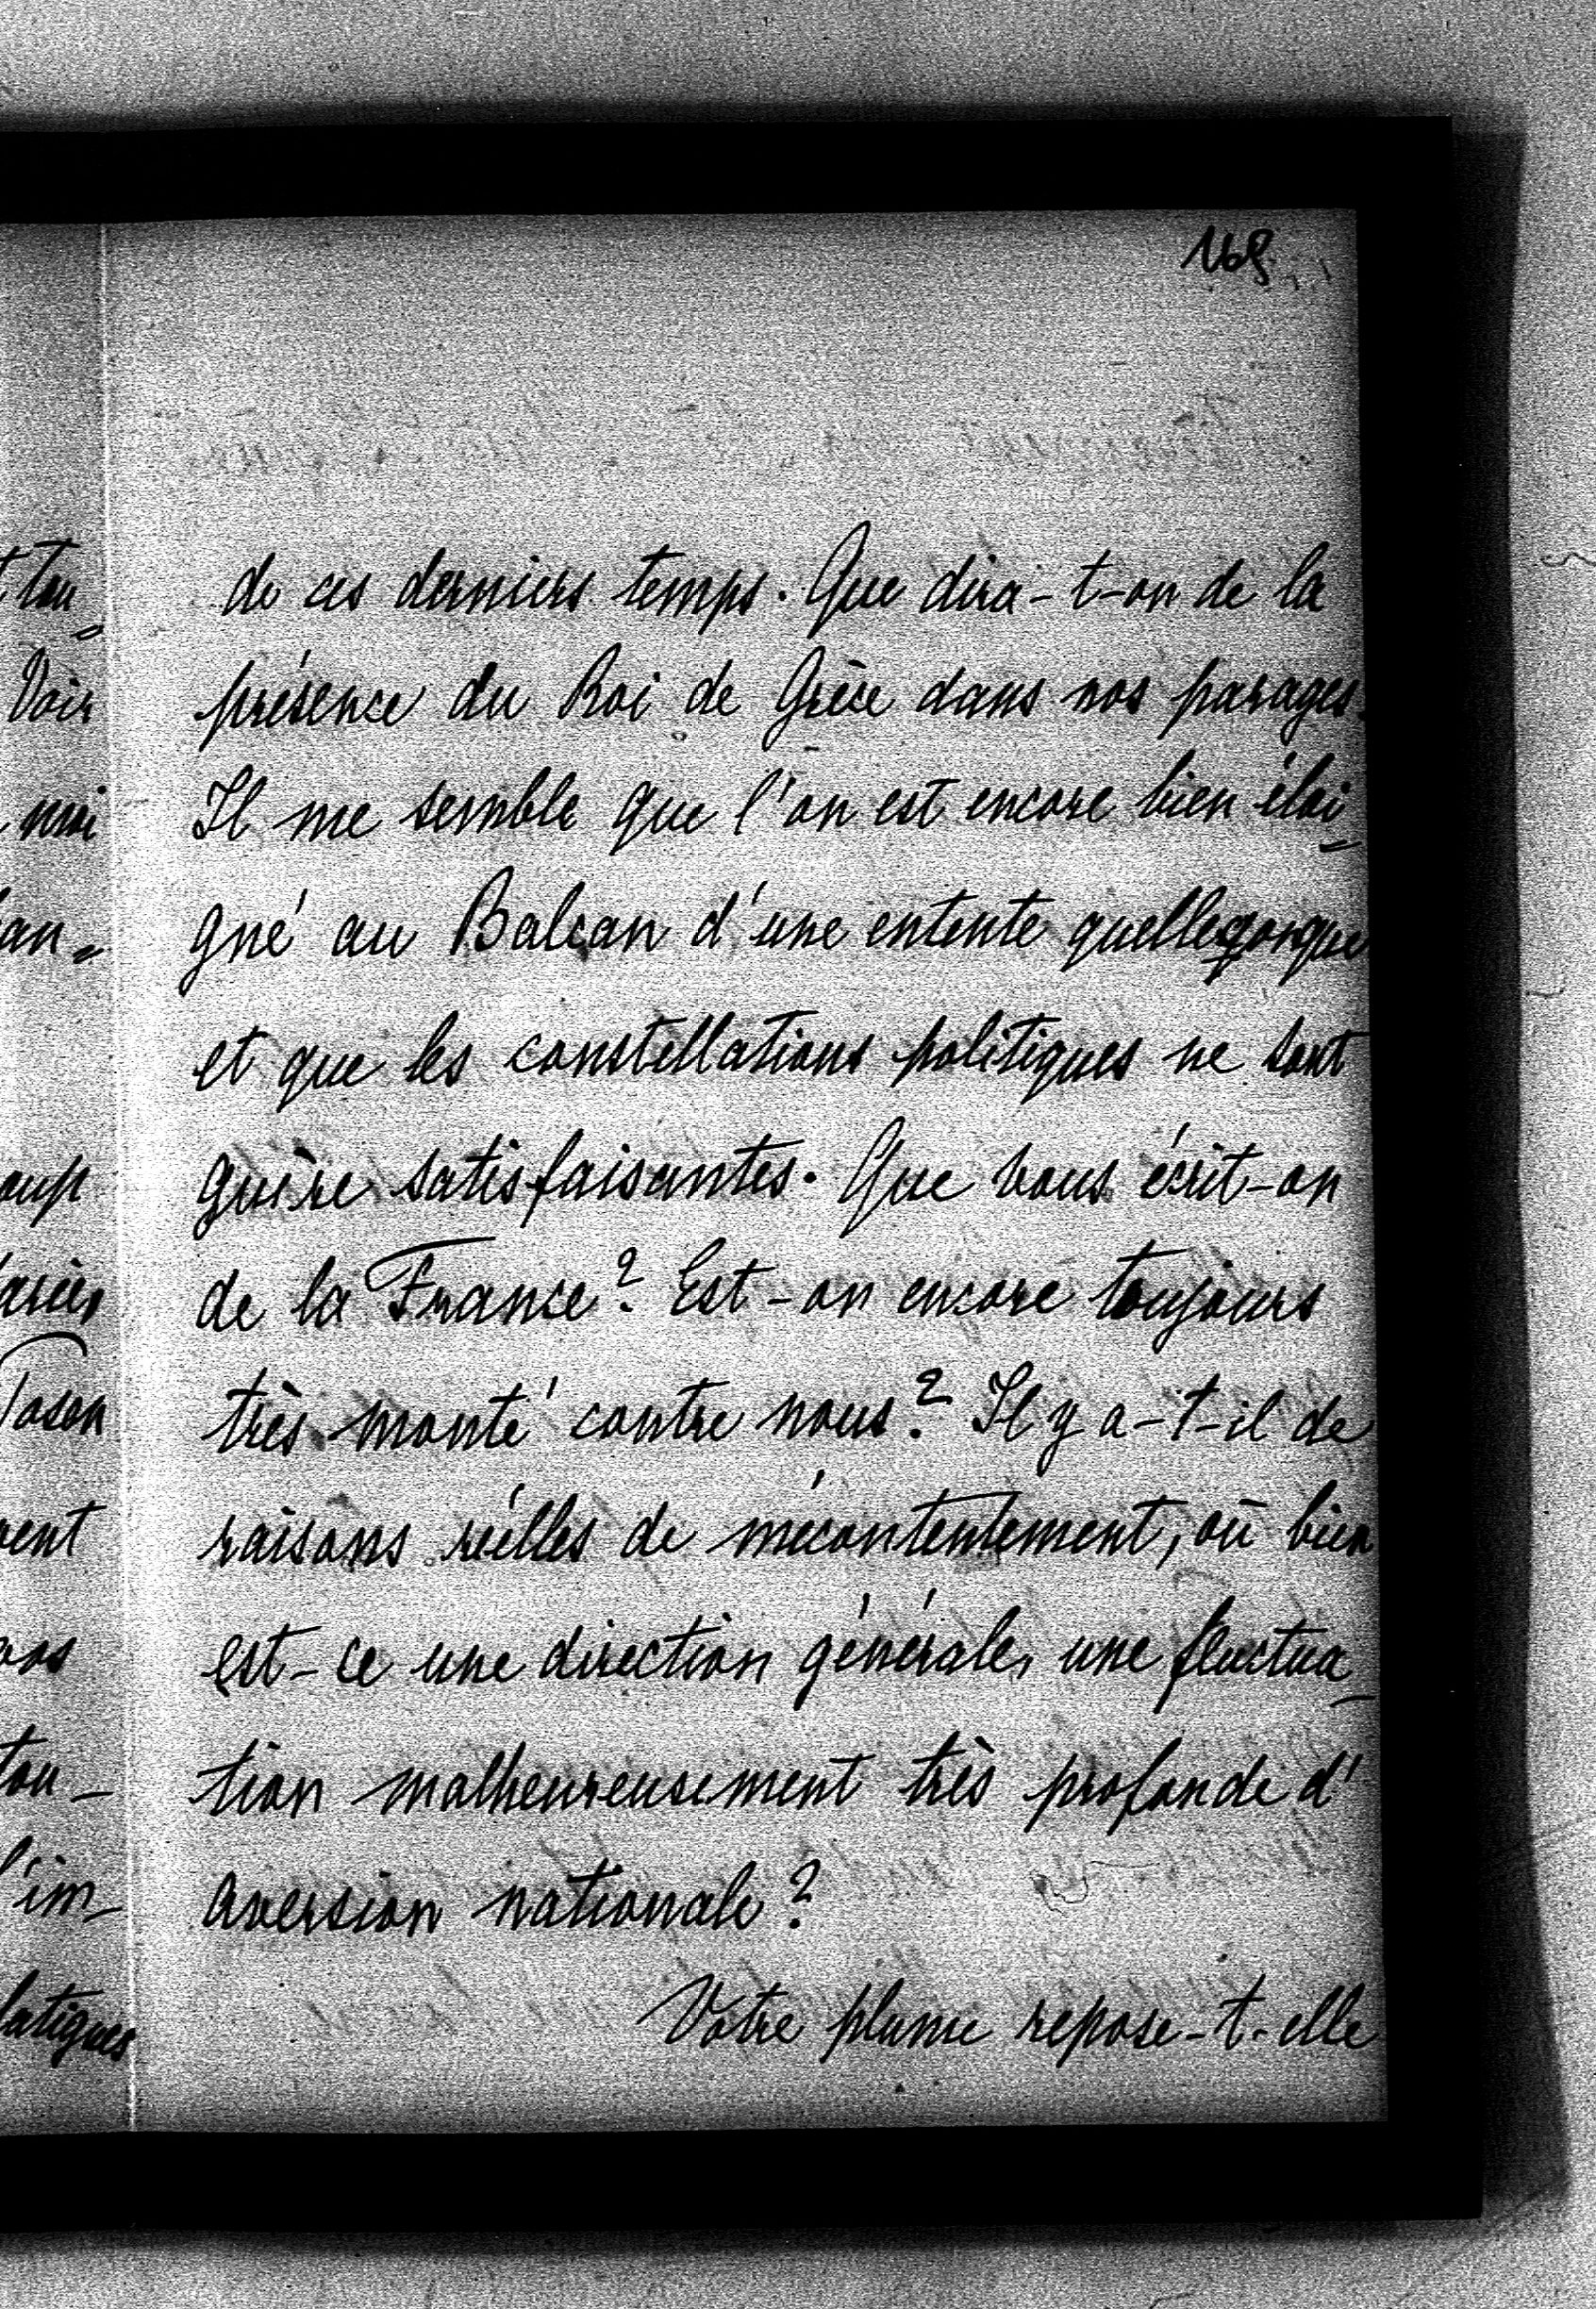 168
de ces derniers temps. Que dira-t-on de la
présence du Roi de Grèce dans nos parages.
Il me semble que l'on est encore bien éloi=
gné au Balcan d'une entente quelleqonque
et que les constellations politiques ne sont
guère satisfaisantes. Que vous écrit-on
de la France? Est-on encore toujours
très monté contre nous? Il y a-t-il de
raisons réelles de mécontentement, où bien
est-ce une direction générale, une fluctua-
tion malheureusement très profonde d'
aversion nationale?
Votre plume repose-t-elle